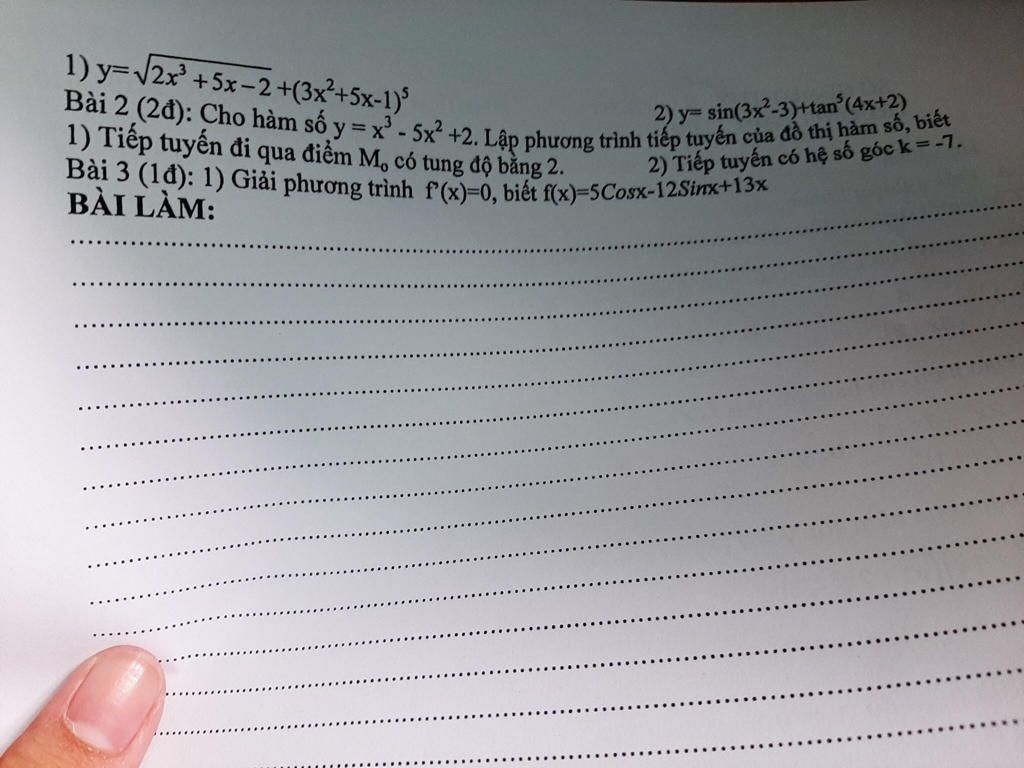 1) y=√2x³ + 5x − 2 +(3x²+5x-1)⁵
2) y= sin(3x²-3)+tan⁵(4x+2)
Bài 2 (2đ): Cho hàm số y = x³ - 5x² +2. Lập phương trình tiếp tuyến của đồ thị hàm số, biết
1) Tiếp tuyến đi qua điểm M₀ có tung độ bằng 2. 2) Tiếp tuyến có hệ số góc k = -7.
Bài 3 (1đ): 1) Giải phương trình f'(x)=0, biết f(x)=5Cosx-12Sinx+13x
BÀI LÀM: